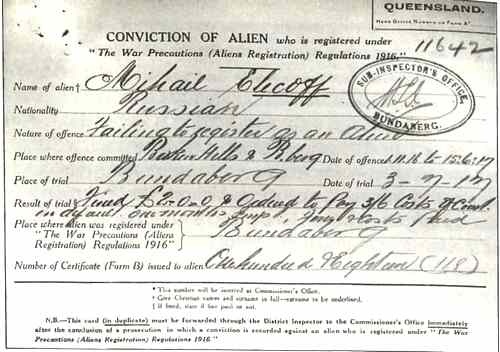 QUEENSLAND.
HEAD OFFICE NUMBER ON FORM A*
CONVICTION OF ALIEN who is registered under
"The War Precautions (Aliens Registration) Regulations 1916."
11642
Name of alien† Mihail Elecoff
Nationality Russian
Nature of offence Failing to register as an Alien
SUB-INSPECTOR'S OFFICE,
BUNDABERG.
Place where offence committed Broken Hills & B.berg Date of offence 1.11.16 to 15.6.17
Place of trial Bundaberg Date of trial 3-7-17
Result of trial Fined £2-0-0 & Ordered to Pay 3/6 Costs of Court
in default one month's Fine & Costs Paid
Place where alien was registered under
"The War Precautions (Aliens
Registration) Regulations 1916"
Bundaberg
Number of Certificate (Form B) issued to alien One hundred & Eighteen (118)
* This number will be inserted at Commissioner's Office.
† Give Christian names and surname in full—surname to be underlined.
‡ If fined, state if fine paid or not.
N.B.—This card (in duplicate) must be forwarded through the District Inspector to the Commissioner's Office immediately
after the conclusion of a prosecution in which a conviction is recorded against an alien who is registered under "The War
Precautions (Aliens Registration) Regulations 1916."